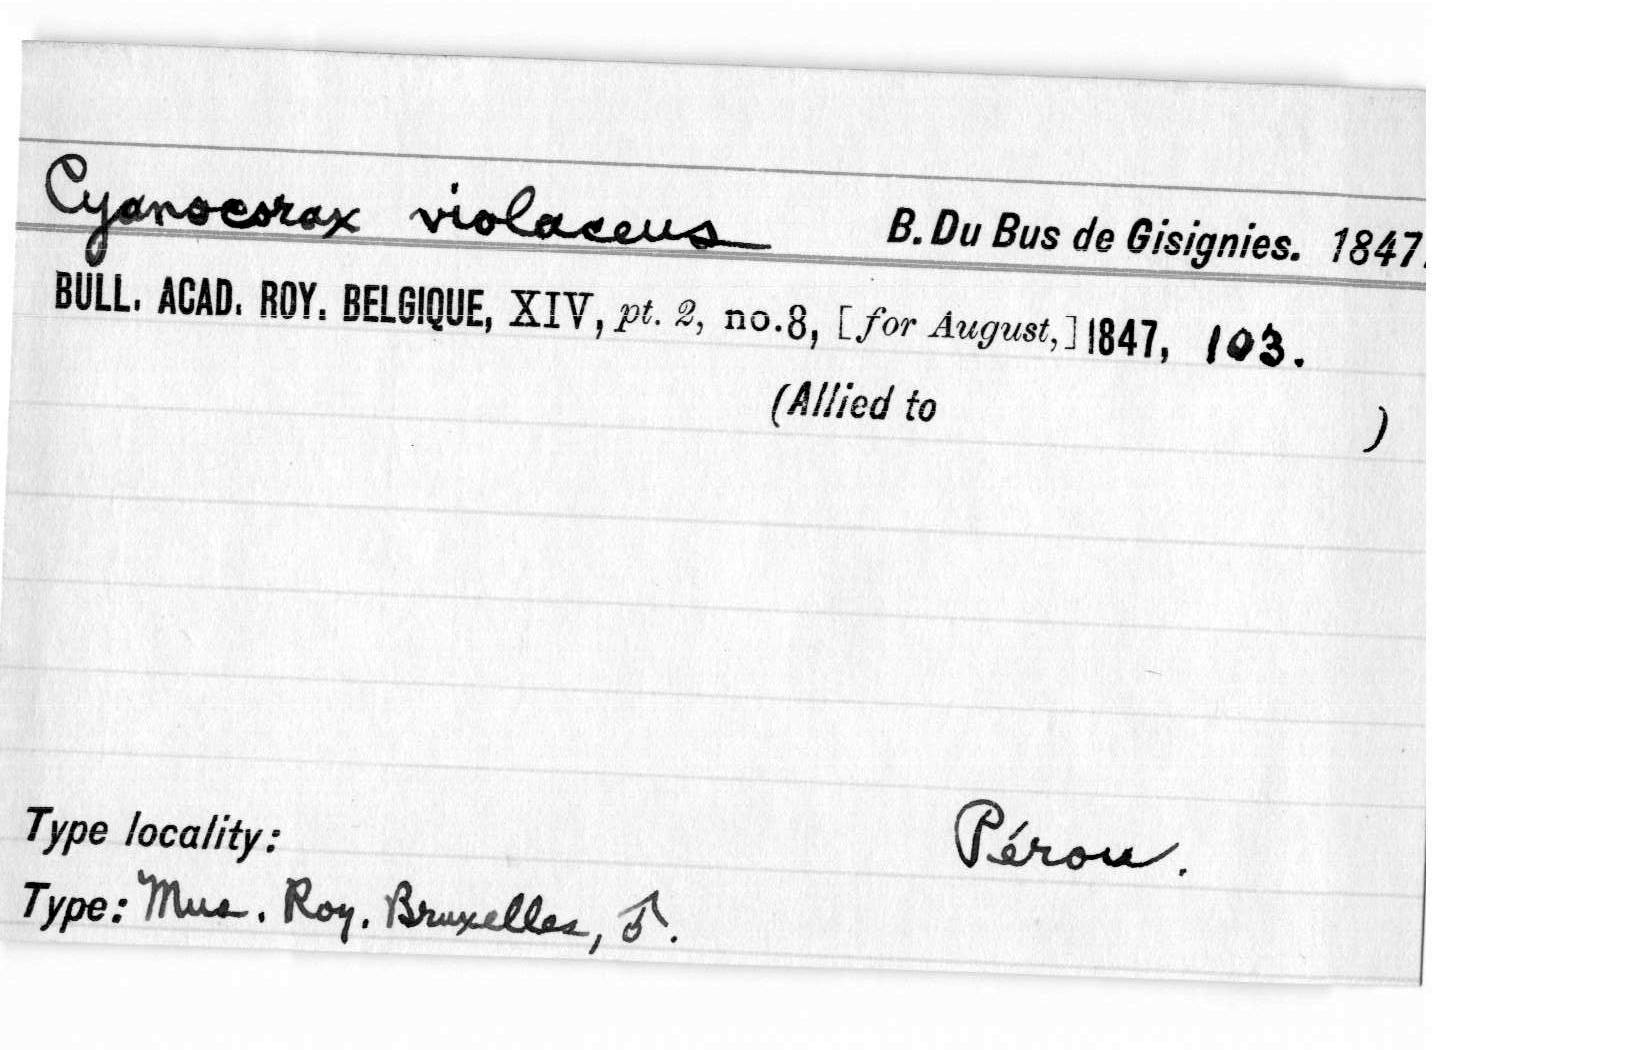 Cyanocorax violaceus B. Du Bus de Gisignies. 1847.
BULL. ACAD. ROY. BELGIQUE, XIV, pt. 2, no. 8, [for August,] 1847, 103.
(Allied to )
Type locality: Pérou.
Type: Mus. Roy. Bruxelles, ♂.